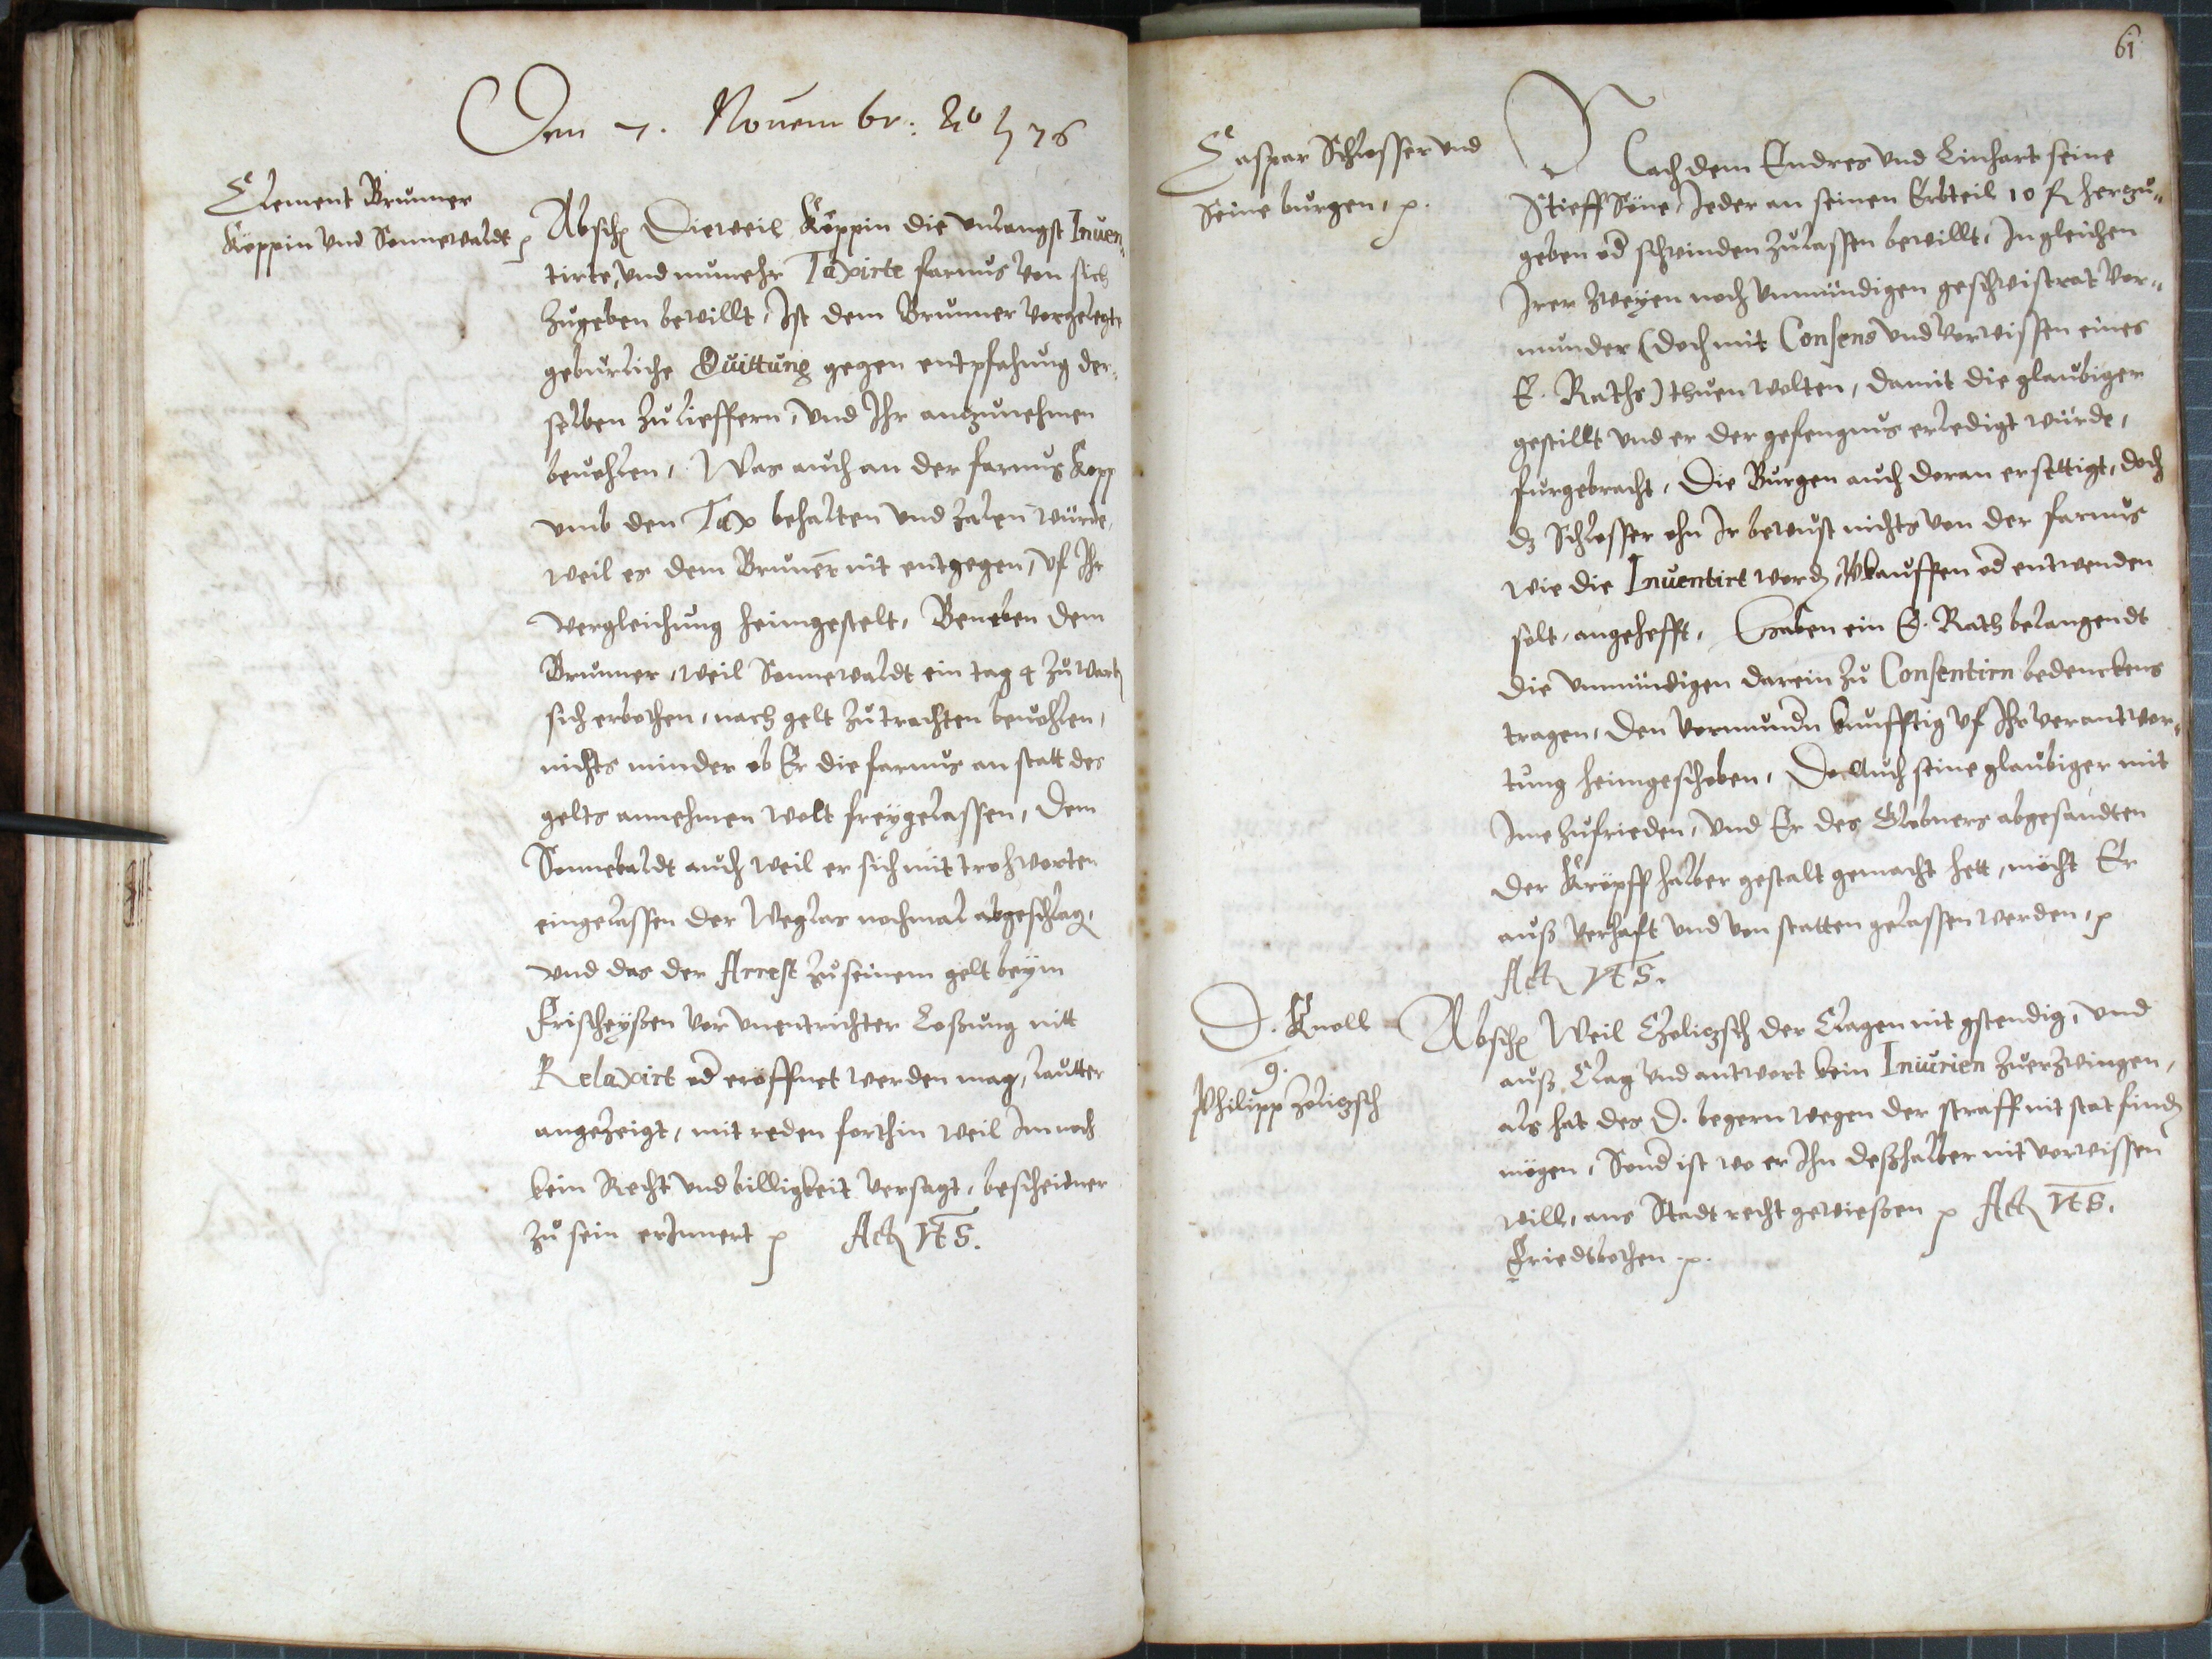 Den 7. Nouembr: Ao 76
Clement Brunner
Köppin vnd Sonnewaldt p
Absch Dieweil Köppin die vnlangst Inuen
tirte, vnd nunmehr Taxirte farnus von sich
zugeben bewillt, Ist dem Brunner vorgelegte
geburliche Quittung gegen entpfahung der
selben zu lieffern, vnd Ihr anzunehmen
beuohlen, Was auch an der farnus Kopp
vmb den Tax behalten vnd zalen würde,
weil es dem Bruner nit entgegen, vf Ihr
vergleichung heimgestelt, Beneben dem
Brunner, weil Sonnewaldt ein tag 4 zu wart
sich erbothen, nach gelt zu trachten beuohlen,
nichts minder ob Er die farnus an statt des
gelts annehmen wolt freygelassen, Dem
Sonnewaldt auch weil er sich mit trohworten
eingelassen der Weglas nochmal abgeschlag,
vnd das der Arrest zu seinem gelt beym
Frischeyßen vor vnentrichter Loßung nitt
Relaxirt od eröffnet werden mag, lautter
angezeigt, mit reden forthin weil Im noch
kein Recht vnd billigkeit versagt, bescheidner
zu sein erInnert p Act vts.
61
Caspar Schlosser vnd
Seine burgen, p.
Nach dem Endres vnd Linhart seine
Stieff Söne, Jeder an seinen Erbteil 10 fl herzu
geben od schwinden zulassen bewillt, In gleichen
Irer zweyen noch vnmündigen geschwistrat vor
munder (Doch mit Consens vnd vorwissen eines
E. Raths) thuen wolten, damit die glaubiger
gestillt vnd er der gefengnus erledigt würde,
furgebracht, Die Burgen auch doran ersettigt, doch
dz Schlosser ohn Ir bewust nichts von der farnus
wie die Inuentirt word, vkauffen od entwenden
solt, angehefft, Haben ein E. Rath belangendt
die vnmündigen darein zu Consentirn bedenckens
tragen, den vormundn kunfftig vf Ihr verantwor
tung heimgeschoben, Do Auch seine glaubiger mit
Ime zufrieden, vnd Er des Globners abgesandten
der Kröpff halber gestalt gemacht hett, möcht Er
auß verhafft vnd von statten gelassen werden, p
Act vts.
D. Knoll
g.
Philipp Zolizsch
Absch Weil Czolizsch der Clagen nit gstendig, vnd
auß Clag vnd antwort kein Iniurien zuerzwingen,
als hat des D. begern wegen der straff nit stat find
mögen, Sond ist wo er Ihn deßhalber nit vorwissen
will, ans Stadtrecht gewießen p Act vts.
Friedbothen p.